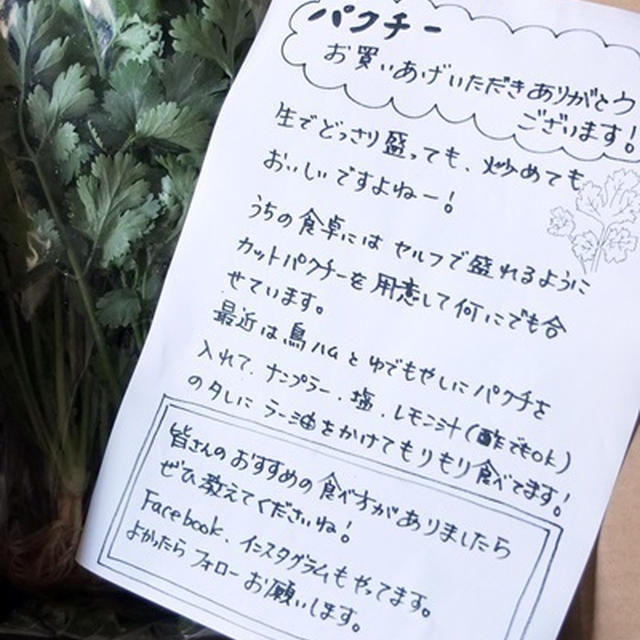 パクチー
お買いあげいただきありがとう
ございます!
生でどっさり盛っても、炒めても
おいしいですよねー!
うちの食卓には セルフで盛れるように
カットパクチーを用意して何にでも合
せています。
最近は鳥ハムとゆでもやしにパクチを
入れて、ナンプラー・塩・レモン汁(酢でもOK)
のタレに ラー油をかけてもりもり食べてます!
皆さんのおすすめの食べ方がありましたら
ぜひ教えてくださいね!
Facebook、インスタグラムもやってます。
よかったら フォローお願いします。